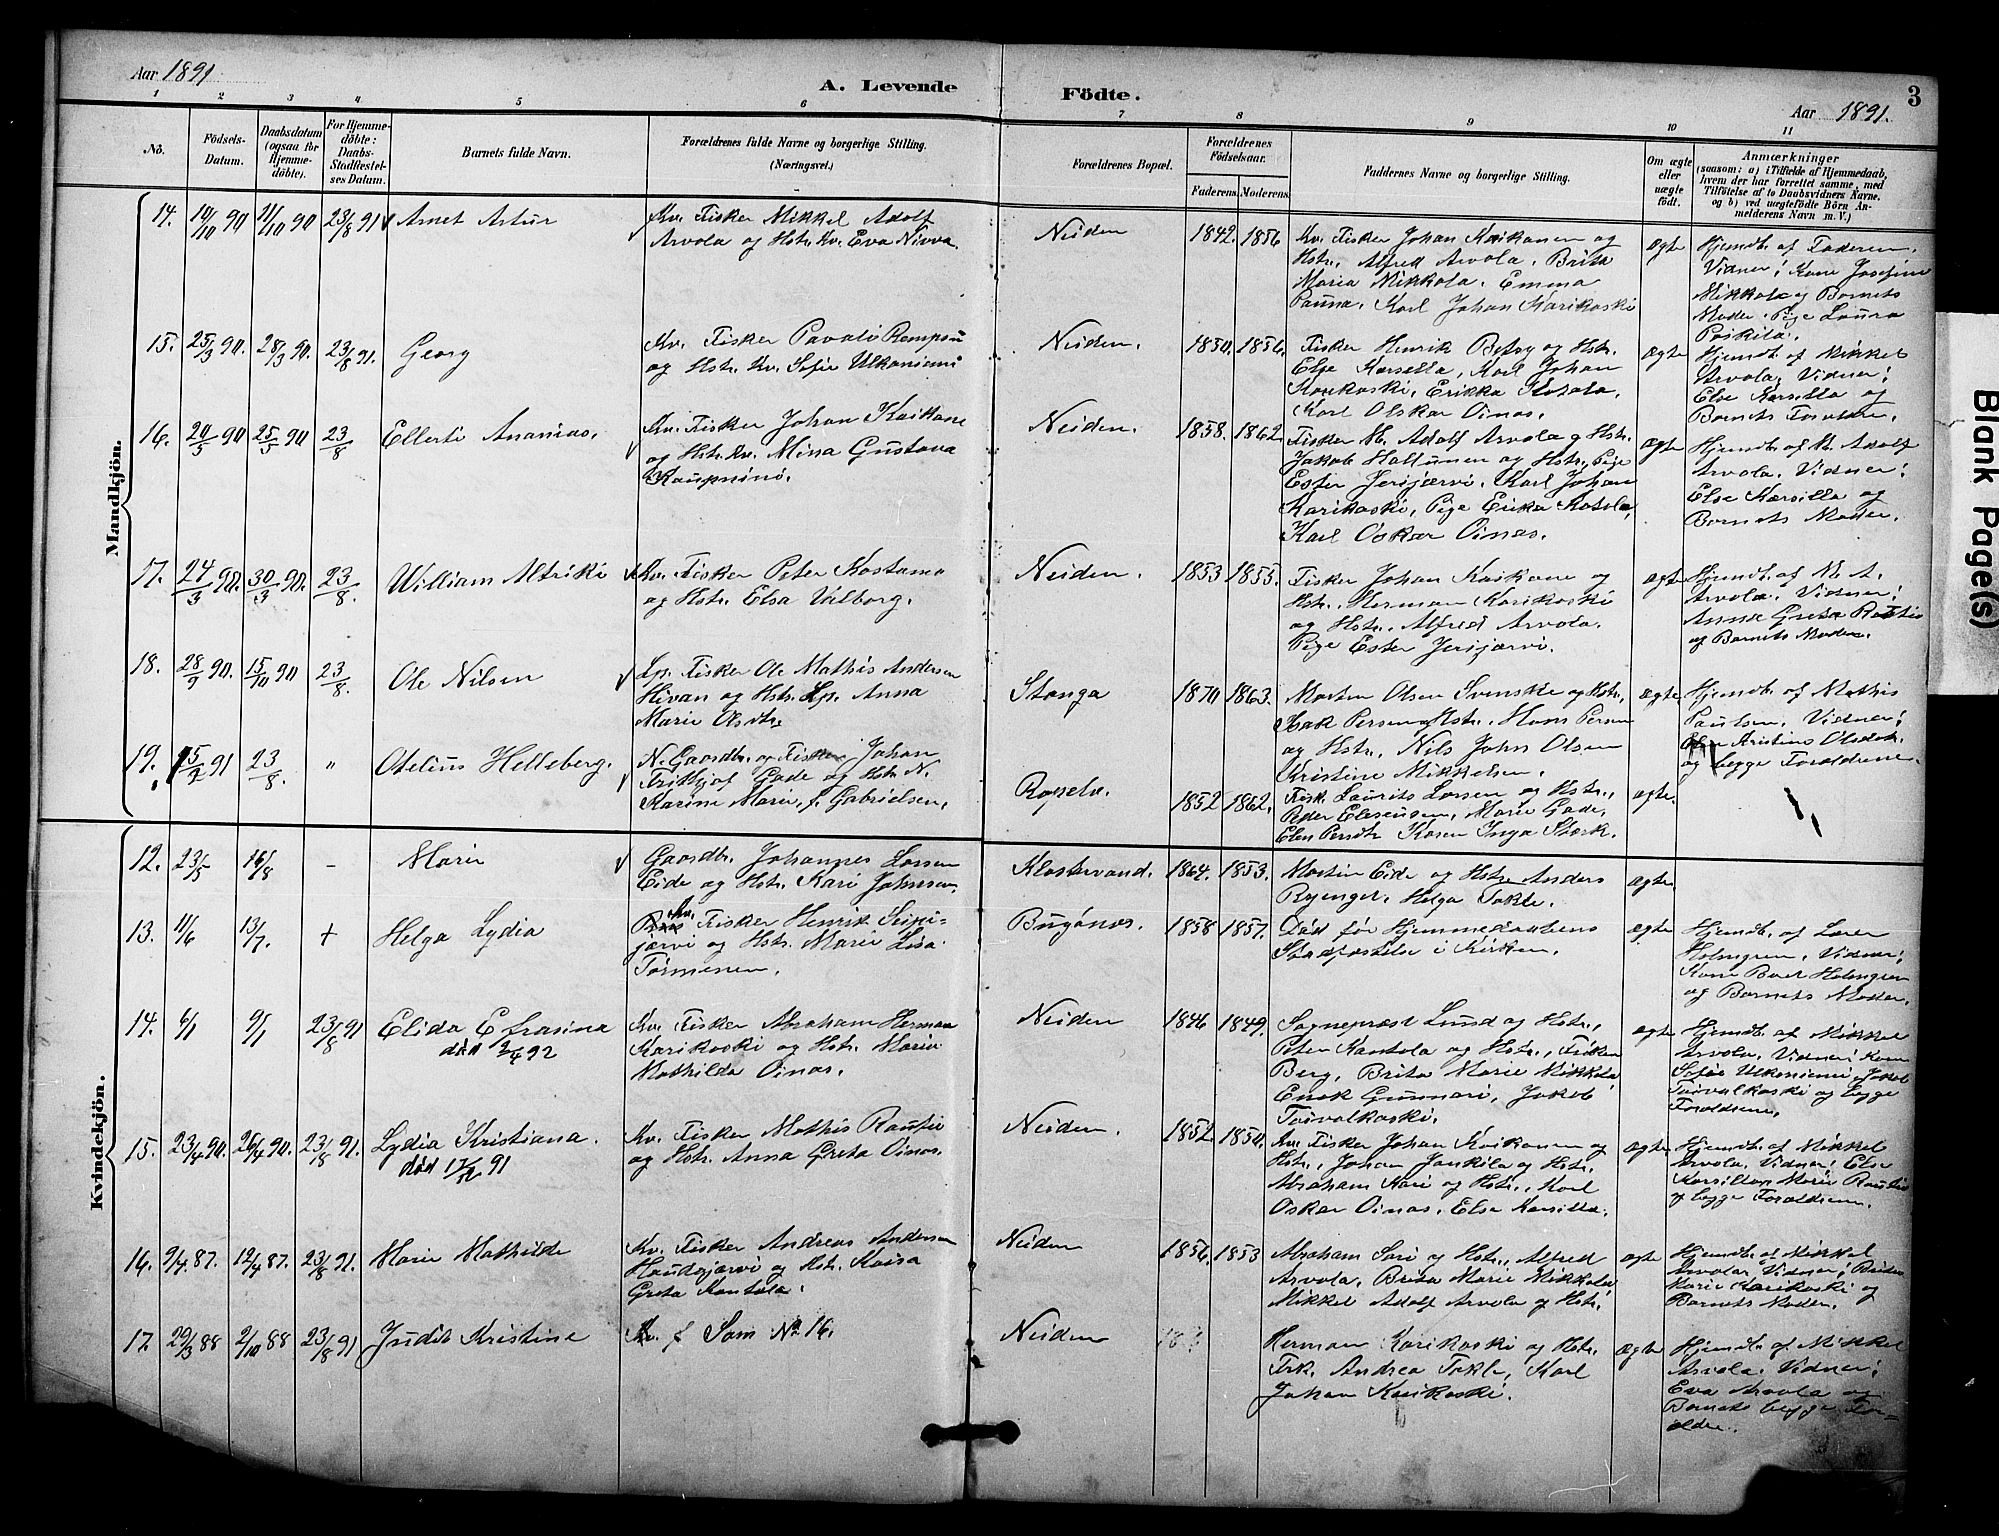 Aar 1891
A. Levende Födte.
Aar 1891.
3
1 2 3 4 5 6 7 8 9 10 11
No.
Födsels-
Datum.
Daabsdatum
(ogsaa for
Hjemme-
döbte).
For Hjemme-
döbte:
Daabs-
Stadfæstel-
ses Datum.
Barnets fulde Navn.
Forældrenes fulde Navne og borgerlige Stilling.
(Næringsvei.)
Forældrenes Bopæl.
Forældrenes
Födselsaar.
Faderens. Moderens.
Faddernes Navne og borgerlige Stilling.
Om ægte
eller
uægte
födt.
Anmærkninger
(saasom: a) i Tilfælde af Hjemmedaab,
hvem der har forrettet samme, med
Tilföielse af to Daabsvidners Navne,
og b) ved uægtefödte Börn An-
melderens Navn m. V.)
Mandkjön.
14. 10/10 90 11/10 90 23/8 91 Arnet Artur
Kv. Fisker Mikkel Adolf
Arvola og Hstr. Kv. Eva Nivva.
Neiden 1842. 1856
Kv. Fisker Johan Kaikanen og
Hstr., Alfred Arvola, Brita
Maria Mikkola, Emma
Pauna, Karl Johan Karikoski
ægte
Hjemdb. af Faderen.
Vidner: Kone Josefine
Mikkola og Barnets
Moder. Pige Laura
15. 25/3 90. 28/3 90. 23/8 91. Georg
Kv. Fisker Pavali
og Hstr. Kv. Sofie Ulkoniemi
Neiden. 1850. 1856.
Fisker Henrik Betsy og Hstr.
Else Karsilla, Karl Johan
Koukoski, Erikka Kotala,
Karl Olskar Oinas.
ægte
Hjemdb. af Mikkel
Arvola. Vidner:
Else Karsilla og
Barnets Forældre.
16. 20/5 90 25/5 90 23/8 Ellerti Ananias.
Kv. Fisker Johan Kaikane
og Hstr. Kv. Mina Gustava
Neiden. 1858. 1862.
Fisker M. Adolf Arvola og Hstr.
Jakob Hallunen og Hstr., Pige
Ester Jerijærvi, Karl Johan
Karikoski, Pige Erika Kotala,
Karl Oskar Oinas.
ægte
Hjemdb. af M. Adolf
Arvola. Vidner:
Else Karsilla og
Barnets Moder.
17. 24/3 90. 30/3 90. 23/8. William Alfriki
Kv. Fisker Peter Kostamo
og Hstr. Elsa Valborg.
Neiden. 1853 1855.
Fisker Johan Kaikane og
Hstr., Herman Karikoski
og Hstr., Alfred Arvola.
Pige Ester Jerijærvi.
ægte
Hjemdb. af M. A.
Arvola. Vidner:
Anna Greta Rautio
og Barnets Moder.
18. 28/9 90. 15/10 90 23/8. Ole Nilsen
Lp. Fisker Ole Mathis Andersen
Hivan og Hstr. Lp. Anna
Marie Olsdtr.
Stanga 1870 1863.
Morten Olsen Svenske og Hstr.,
Isak Persen og Hstr., Hans Persen
og Hstr., Nils John Olsen
Kristine Mikkelsen.
ægte
Hjemdb. af Mathis
Paulsen. Vidner:
Kristine Olsdtr.
og begge Forældrene.
19. 15/2 91 23/8. " Otelius Helleberg.
N. Gaardbr. og Fisker Johan
Frithjof Gade og Hstr. N.
Karine Marie, f. Gabrielsen.
1852 1862.
Fisk. Laurits Larsen og Hstr.,
Peder Elesensen, Marie Gade,
Elen Persdtr. Karen Inga Stærk.
ægte.
Kvindekjön.
12. 23/5 16/8 – Marie
Gaardbr. Johannes Larsen
Eide og Hstr. Kari Johnsen.
Klostervand. 1864. 1853.
Martin Eide og Hstr. Anders
Ryenget, Helga Takle.
ægte
13. 11/6 13/7. + Helga Lydia
Kv. Fisker Henrik Seipi-
jærvi og Hstr. Maria Lisa
Tormenen.
Bugönæs. 1858 1857.
Död för Hjemmedaabens
Stadfæstelse i Kirken.
ægte
Hjemdb. af Lærer
Holmgren, Vidner:
Kone Boel Holmgren
og Barnets Moder.
14. 6/1 9/1 23/8 91 Elida Efrasina
död 2/4 92
Kv. Fisker Abraham Herman
Karikoski og Hstr. Maria
Mathilda Oinas.
Neiden 1846 1849.
Sognepræst Lund og Hstr.,
Peter Kantola og Hstr., Fröken
Berg, Brita Marie Mikkola,
Enok Gunnari, Jakob
Toivalkoski.
ægte
Hjemdb. af Mikkel
Arvola. Vidner: Kone
Sofie Ulkoniemi, Jakob
Toivalkoski og begge
Forældrene.
15. 23/4 90. 26/4 90. 23/8 91. Lydia Kristiana.
Kv. Fisker Mathis Rautio
og Hstr. Anna Greta Oinas.
Neiden. 1852 1850.
Kv. Fisker Johan Kaikanen og
Hstr., Johan Jankila og Hstr.
Abraham Kari og Hstr., Karl
Oskar Oinas, Else Karsilla.
ægte
Hjemdb. af Mikkel
Arvola. Vidner: Else
Karsilla, Marie Rautio
og begge Forældrene.
16. 9/4 87. 12/4 87. 23/8 91. Marie Mathilde
Kv. Fisker Andreas Andersen
Haudsjærvi og Hstr. Kaisa
Greta Kantola.
Neiden 1856. 1853
Abraham Seri og Hstr., Alfred
Arvola, Brita Marie Mikkola,
Mikkel Adolf Arvola og Hstr.
ægte
Hjemdb. af Mikkel
Arvola. Vidner: Brita
Marie Karikoski og
Barnets Moder.
17. 29/3 88 2/10 88 23/8 91 Judit Kristine
Som No 16.
Neiden
Herman Karikoski og Hstr.
Frk. Andrea Takle, Karl
Johan Karikoski.
ægte
Hjemdb. af Mikkel
Arvola. Vidner:
Eva Arvola og
Barnets begge For-
ældre.
Blank Page(s)